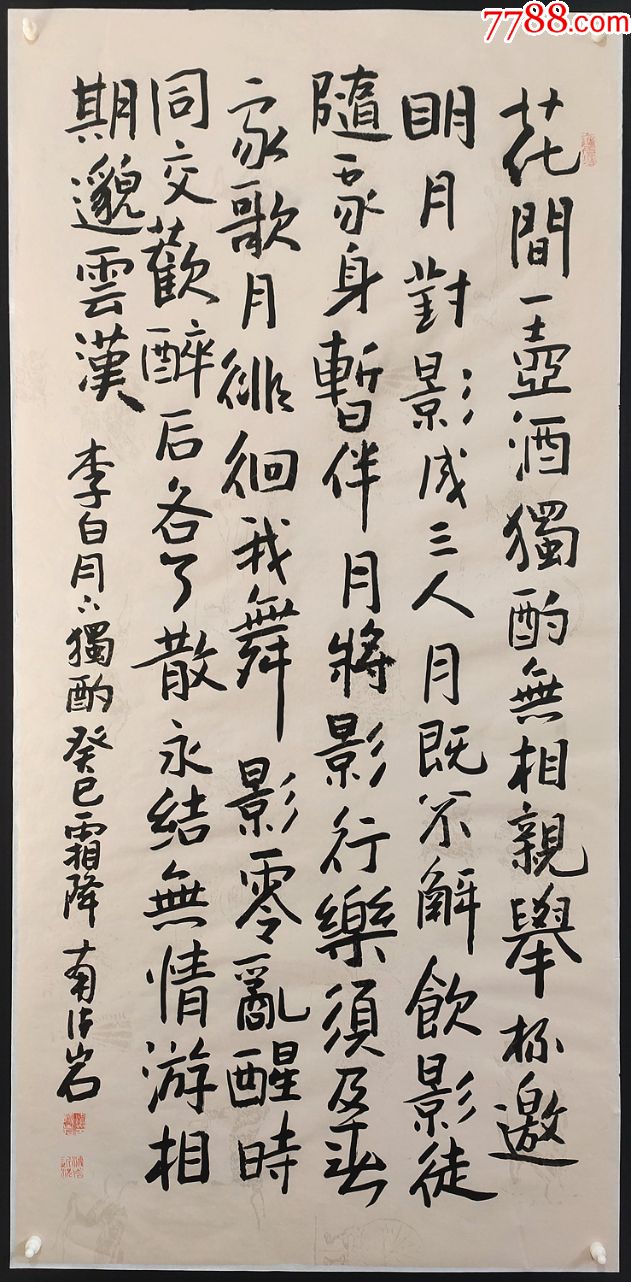 花間一壺酒獨酌無相親舉杯邀
明月對影成三人月既不解飲影徒
隨家身暫伴月將影行樂須及春
家歌月徘徊我舞影零亂醒時
同交歡醉后各分散永結無情游相
期邈雲漢
李白月下獨酌癸巳霜降
7788.com